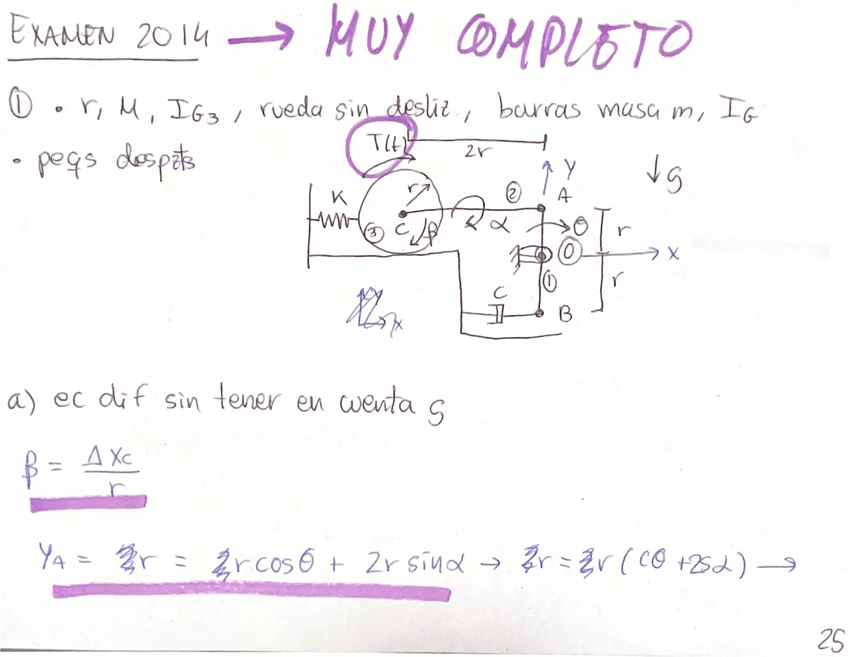 EXAMEN 2014 → MUY COMPLETO
① • r, M, I_G3, rueda sin desliz, barras masa m, I_G
• peqs despzts
T(t)
2r
K
r
②
Y
A
↓ g
③
C
β
α
θ
r
O
x
①
r
C
B
x
a) ec dif sin tener en cuenta g
β = ΔXc / r
Y_A = r = r cosθ + 2r sinα → r = r (cθ + 2sα) →
25